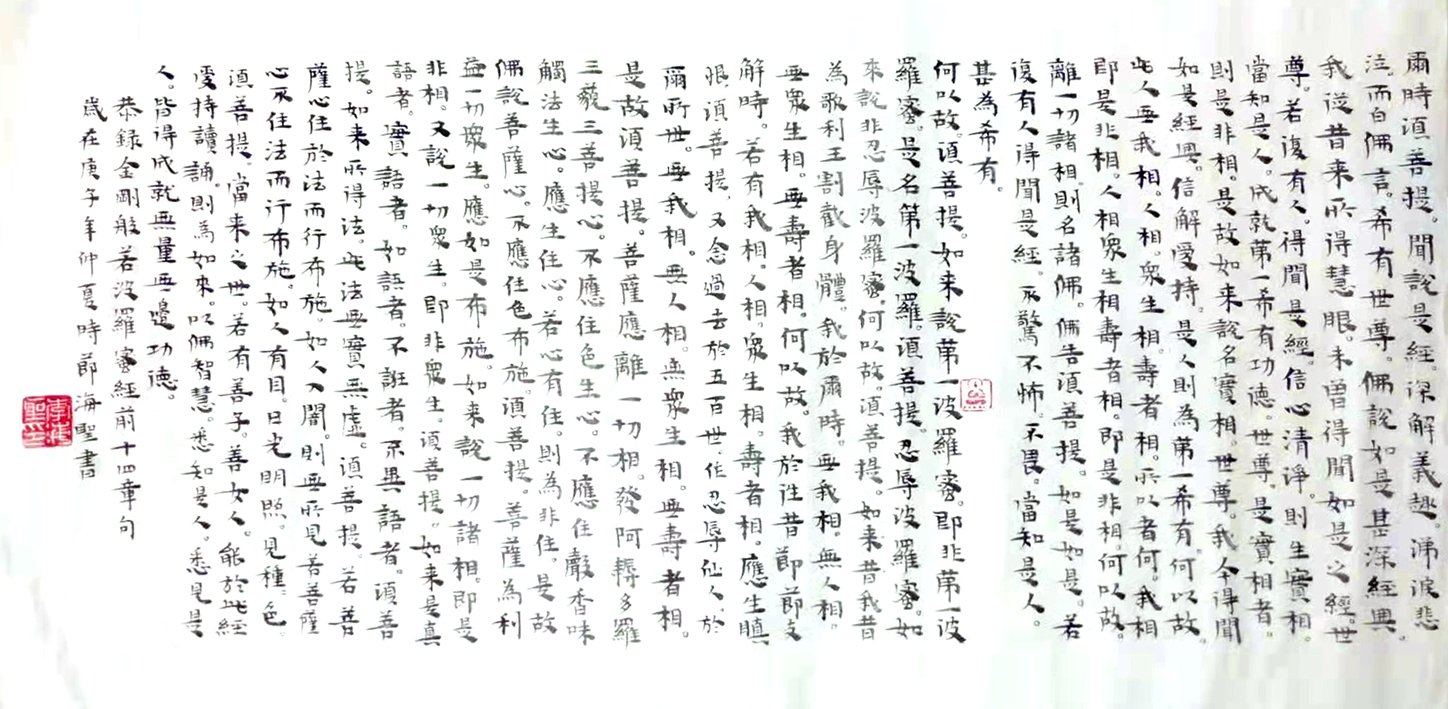 爾時須菩提。聞說是經。深解義趣。涕淚悲
泣。而白佛言。希有世尊。佛說如是甚深經典。
我從昔来所得慧眼。未曾得聞如是之經。世
尊。若復有人。得聞是經。信心清諍。則生實相。
當知是人。成就第一希有功德。世尊。是實相者。
則是非相。是故如来說名實相。世尊。我今得聞
如是經典。信解受持。是人則為第一希有。何以故。
此人無我相。人相。衆生相。壽者相。所以者何。我相
即是非相。人相衆生相壽者相。即是非相。何以故。
離一切諸相。則名諸佛。佛告須菩提。如是如是。若
復有人得聞是經。不驚不怖。不畏。當知是人。
甚為希有。
何以故。須菩提。如来說第一波羅蜜。即非第一波
羅蜜。是名第一波羅。須菩提。忍辱波羅蜜。如
來說非忍辱波羅蜜。何以故。須菩提。如来昔我昔
為歌利王割截身體。我於爾時。無我相。無人相。
無衆生相。無壽者相。何以故。我於往昔節節支
解時。若有我相。人相。衆生相。壽者相。應生瞋
恨。須菩提。又念過去於五百世。作忍辱仙人。於
爾所世。無我相。無人相。無衆生相。無壽者相。
是故須菩提。菩薩應離一切相。發阿耨多羅
三藐三菩提心。不應住色生心。不應住聲香味
觸法生心。應生住心。若心有住。則為非住。是故
佛說菩薩心。不應住色布施。須菩提。菩薩為利
益一切衆生。應如是布施。如来說一切諸相。即是
非相。又說一切衆生。即非衆生。須菩提。如来是真
語者。實語者。如語者。不誑者。不異語者。須菩
提。如来所得法。此法無實無虛。須菩提。若菩
薩心住於法而行布施。如人入闇。則無所見。若菩薩
心不住法而行布施。如人有目。日光明照。見種。色。
須菩提。當来之世。若有善子。善女人。能於此經
受持讀誦。則為如來。以佛智慧。悉知是人。悉見是
人。皆得成就無量無邊功德。
恭錄金剛般若波羅蜜經前十四章句
歲在庚子年仲夏時節海聖書